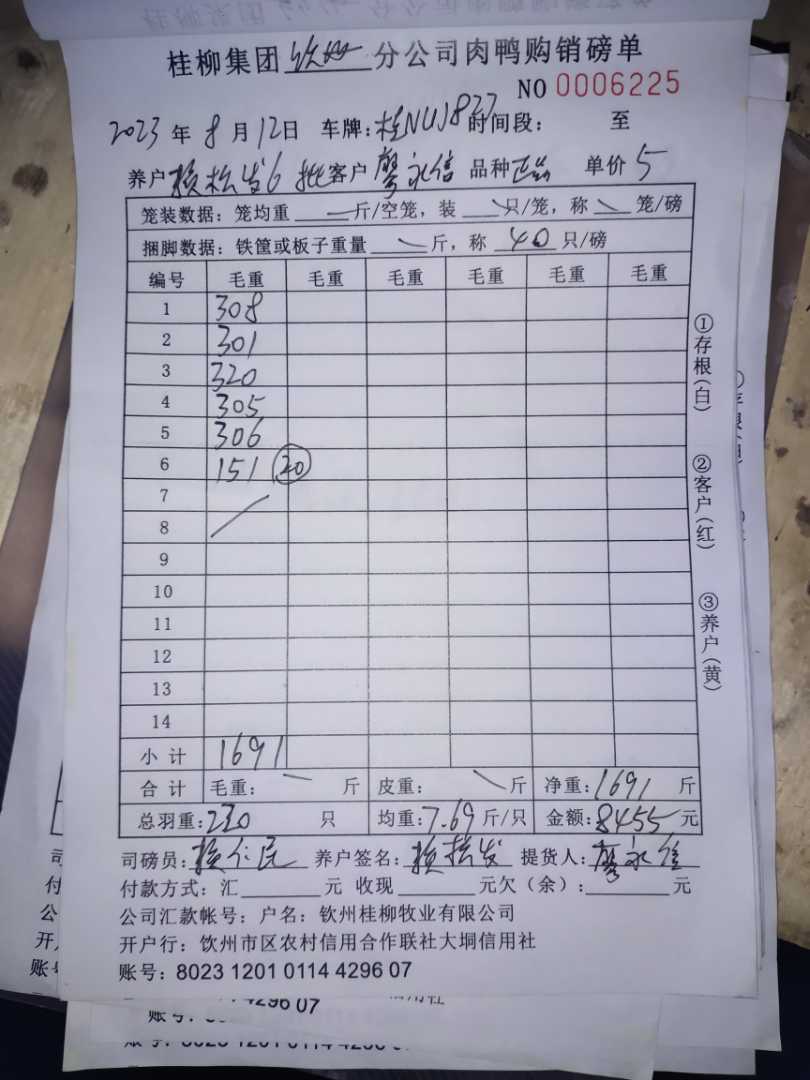 桂柳集团钦州分公司肉鸭购销磅单
NO 0006225
2023年8月12日 车牌:桂NUJ827 时间段: 至
养户赖松发6批 客户廖永信 品种 单价5
笼装数据:笼均重 一 斤/空笼,装 \ 只/笼,称 \ 笼/磅
捆脚数据:铁筐或板子重量 \ 斤,称 40 只/磅
编号 毛重 毛重 毛重 毛重 毛重 毛重
1 308
2 301
3 320
4 305
5 306
6 151 20
7
8
9
10
11
12
13
14
小计 1691
合计 毛重: 一 斤 皮重: \ 斤 净重:1691 斤
总羽重:220 只 均重:7.69斤/只 金额:8455元
司磅员:赖仁民 养户签名:赖松发 提货人:廖永信
付款方式:汇 元 收现 元欠(余): 元
公司汇款帐号:户名:钦州桂柳牧业有限公司
开户行:钦州市区农村信用合作联社大垌信用社
账号:8023 1201 0114 4296 07
①存根(白)
②客户(红)
③养户(黄)